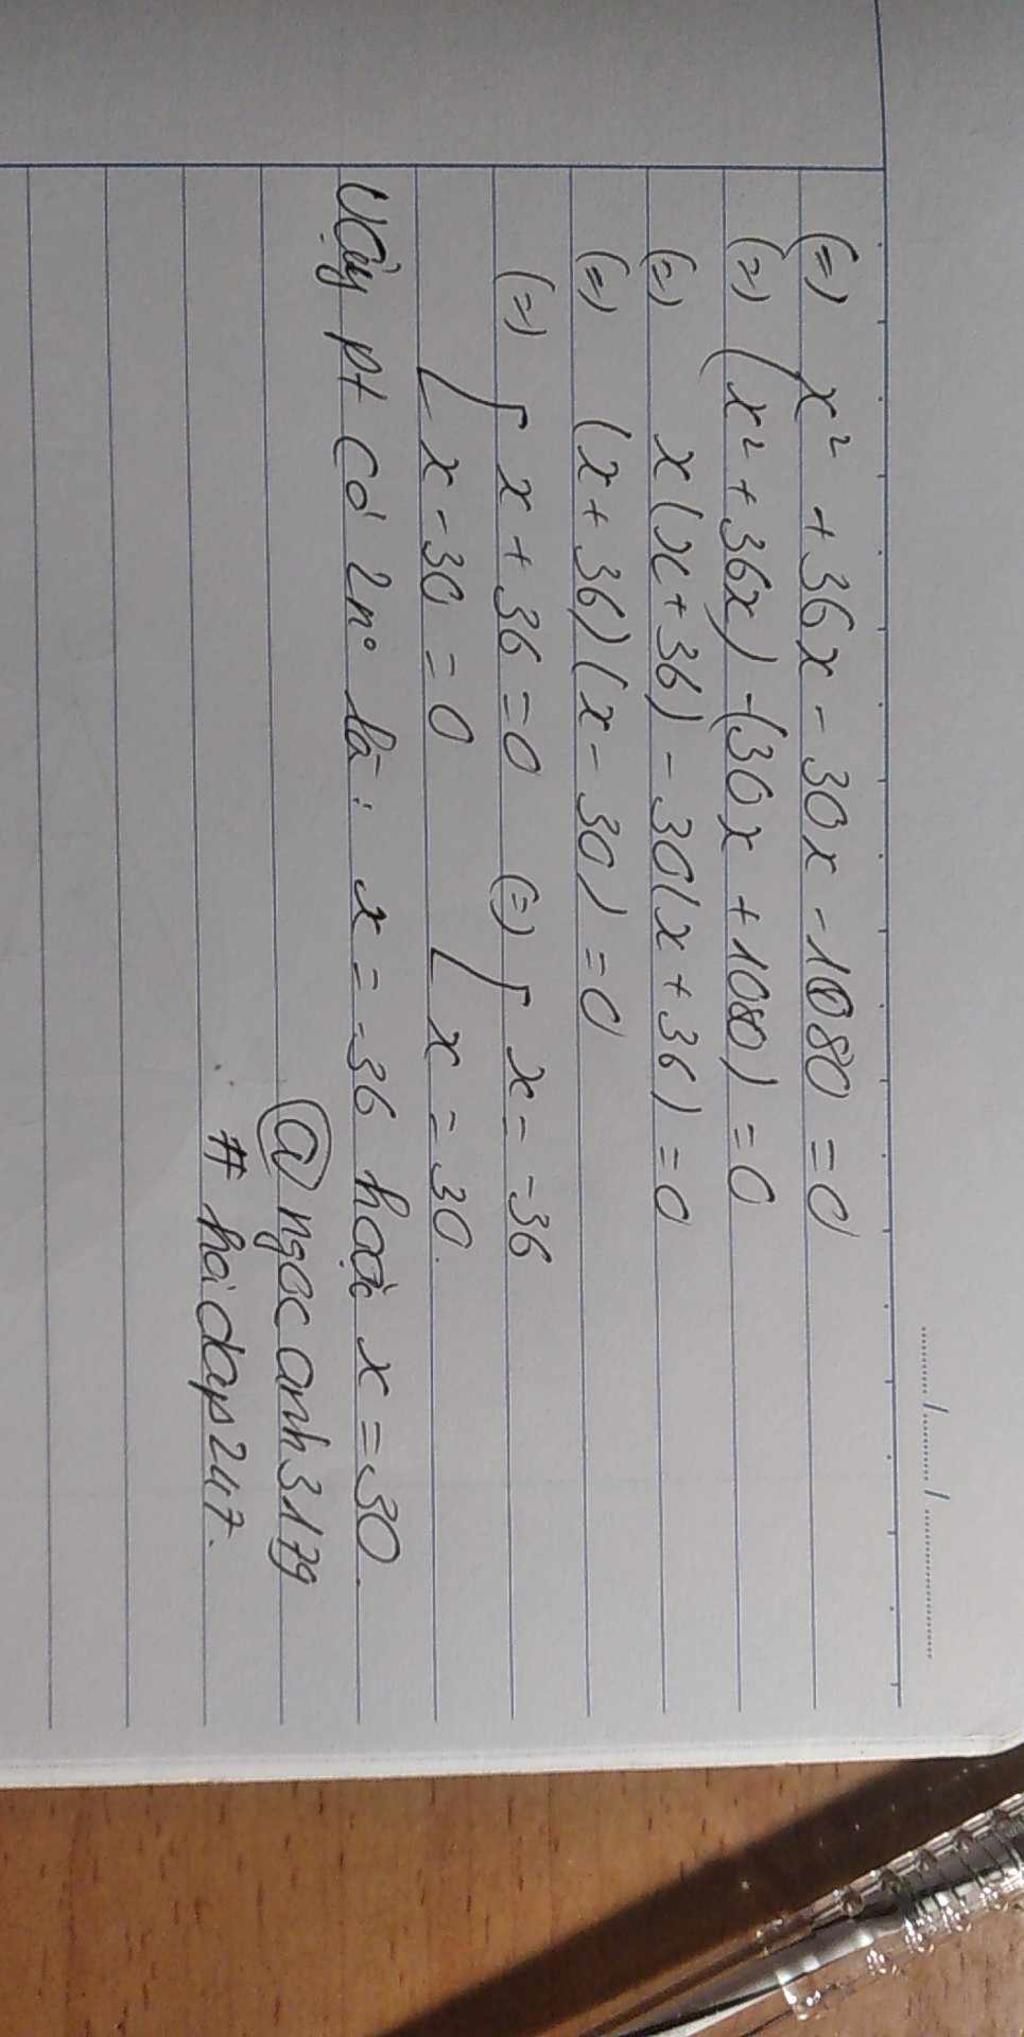 (=) x² + 36x - 30x - 1080 = 0
(=) (x² + 36x) - (30x + 1080) = 0
(=) x(x + 36) - 30(x + 36) = 0
(=) (x + 36)(x - 30) = 0
(=) [ x + 36 = 0 (=) [ x = -36
[ x - 30 = 0 [ x = 30.
Vậy pt có 2 n° là : x = -36 hoặc x = 30.
@ngocanh3179
# hoidap247.